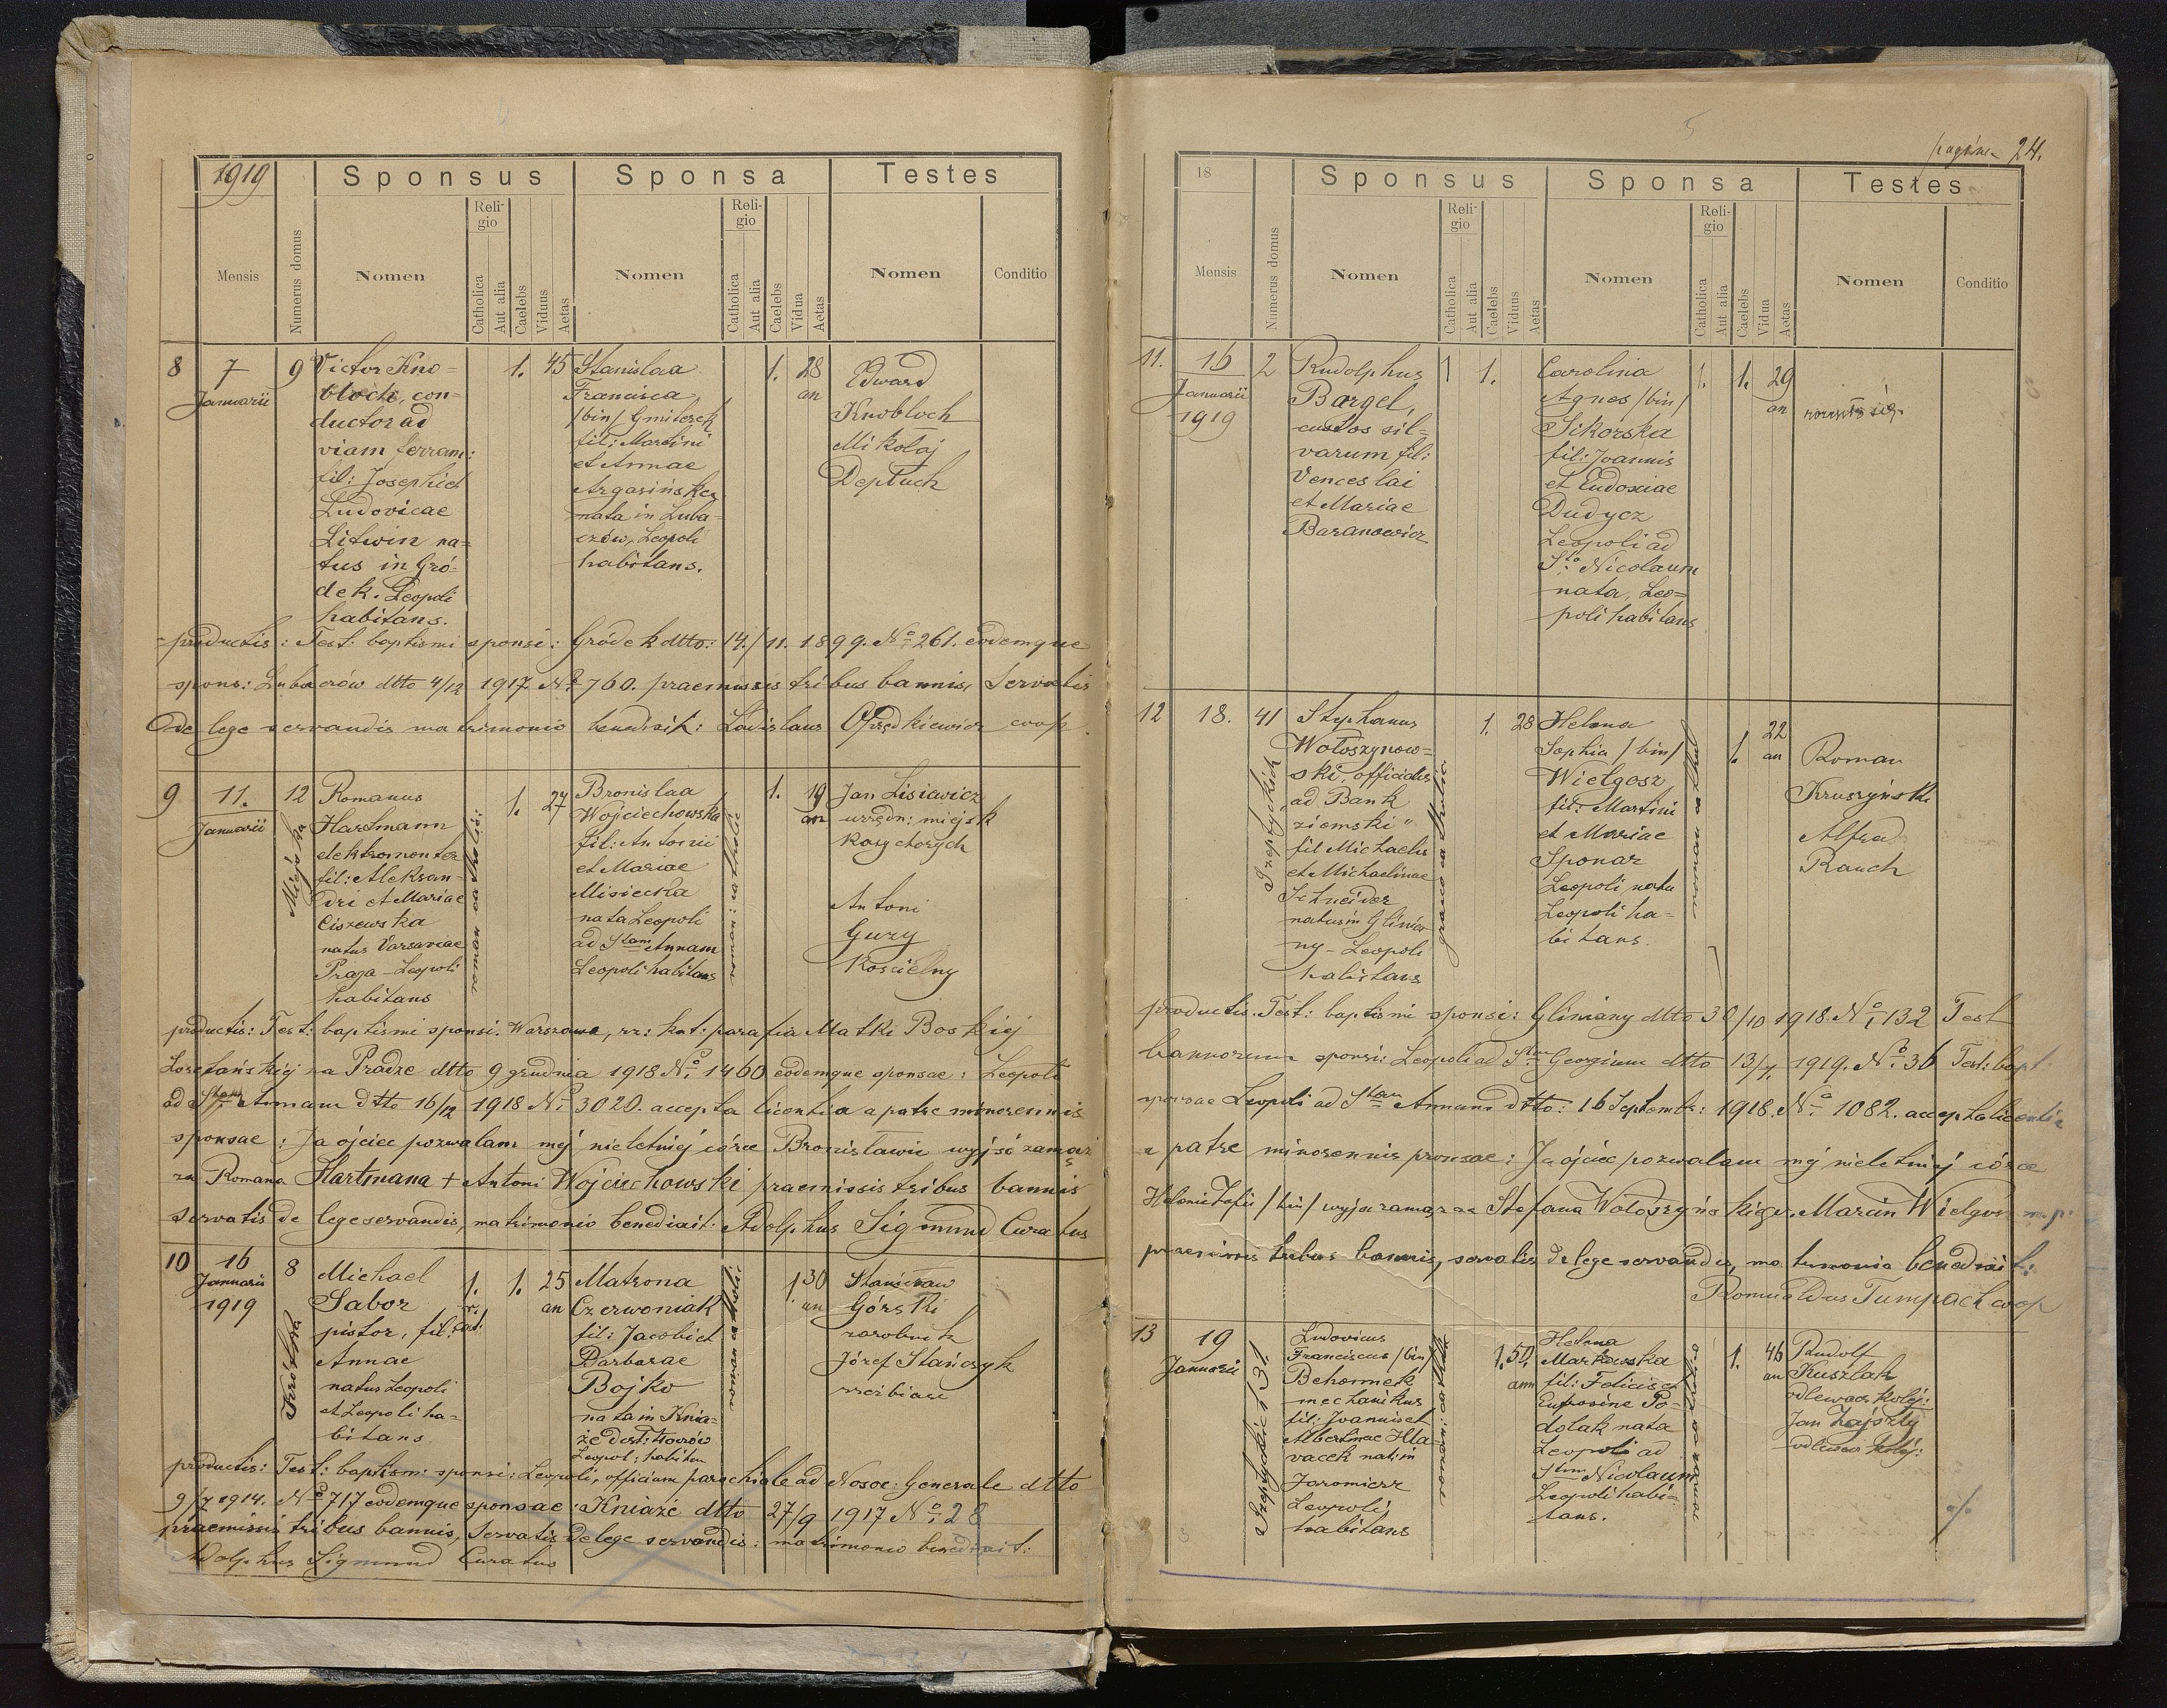 1919
Sponsus Sponsa Testes
Mensis
Numerus domus
Nomen
Religio
Catholica
Aut alia
Caelebs
Viduus
Aetas
Nomen
Religio
Catholica
Aut alia
Caelebs
Vidua
Aetas
Nomen
Conditio
8
7
Januarii
9
Victor Kno=
bloch, con-
ductor ad
viam ferram:
fil: Josephi et
Ludovicae
Litwin na=
tus in Gró-
dek. Leopoli
habitans.
1. 45
Stanislaa
Francisca
/bin/ Gmiterek
fil: Martini
et Annae
Argasińska
nata in Luba-
czów, Leopoli
habitans.
1. 28
an
Edward
Knobloch
Mikołaj
Deptuch
productis: Test: baptismi sponsi: Gródek dtto: 14/11. 1899. No 261. eodemque
spons: Lubaczów dtto 4/12 1917 No 760. praemissis tribus bannis, servatis
de lege servandis matrimonio benedixit: Ladislaus Oprędkiewicz coop.
9
11.
Januarii
12
Miejska
Romanus
Hartmann
elektromonter
fil: Aleksan-
dri et Mariae
Ciszewska
natus Varsaviae
Praga - Leopoli
habitans
roman catholic:
1. 27
Bronislaa
Wojciechowska
fil: Antonii
et Mariae
Misiecka
nata Leopoli
ad Stam Annam
Leopoli habitans
roman: catholic
1. 19
an
Jan Lisiewicz
urzędn: miejsk
Kasy chorych
Antoni
Guzy
Kościelny
productis: Test: baptismi sponsi. Warszawa, rz: kat: parafia Matki Boskiej
Loretańskiej na Pradze dtto 9 grudnia 1918 No 1460 eodemque sponsae: Leopoli
ad Stam Annam dtto 16/12 1918 No 3020. accepta licentia a patre minorennis
sponsae: Ja ojciec pozwalam mej nieletniej córce Bronisławie wyjść zamąż
za Romana Hartmana + Antoni Wojciechowski praemissis tribus bannis
servatis de lege servandis, matrimonio benedixit: Adolphus Sigmund Curatus
10
16
Januarii
1919
8
Michael
Sabor
pistor, fil:
Annae
natus Leopoli
et Leopoli ha-
bitans
1.
r.
cat:
1. 25
an
Matrona
Czerwoniak
fil: Jacobi et
Barbarae
Bojko
nata in Knia-
że
Leopol: habitan
roman catholic
1. 30
an
Stanisław
Górski
zarobnik
Józef Stańczyk
productis: Test: baptism: sponsi: Leopoli, officium parochiale ad Nosoc: Generale dtto
9/7 1914. No 717 eodemque sponsae: Kniaże dtto 27/9 1917 No 28
praemissis tribus bannis, servatis de lege servandis: matrimonio benedixit:
Adolphus Sigmund Curatus
24.
18
Sponsus Sponsa Testes
Mensis
Numerus domus
Nomen
Religio
Catholica
Aut alia
Caelebs
Viduus
Aetas
Nomen
Religio
Catholica
Aut alia
Caelebs
Vidua
Aetas
Nomen
Conditio
11.
16
Januarii
1919
2
Rudolphus
Bargel,
custos sil=
varum fil:
Venceslai
et Mariae
Baranowicz
1 1.
Carolina
Agnes /bin/
Sikorska
fil: Joannis
et Eudoxiae
Dudycz
Leopoli ad
Sto Nicolaum
nata, Leo=
poli habitans
1. 1. 29
an
12
18.
41
Szeptyckich
Stephanus
Wołoszynow=
ski, officialis
ad „Bank
ziemski"
fil Michaelis
et Michaelinae
Schneider
natus in Glinia
ny - Leopoli
habitans
graeco catholic
1. 28
Helena
Sophia /bin/
Wielgosz
fil: Martini
et Mariae
Sponar
Leopoli nata
Leopoli ha-
bitans.
roman cathol
1. 22
an
Roman
Kruszyński
Alfred
Rauch
productis. Test: baptismi sponsi: Gliniany dtto 30/10 1918. No 132 Test
bannorum sponsi: Leopoli ad Stum Georgium dtto 13/1. 1919. No 36 Test: bapt:
sponsae Leopoli ad Stam Annam dtto: 16 Septembr: 1918. No 1082. accepta licentia
a patre minorennis sponsae: Ja ojciec pozwalam mej nieletniej córce
Helenie Zofii /bin/ wyjść zamąż za Stefana Wołoszyńskiego. Marcin Wielgosz m.p.
praemissis tribus bannis, servatis de lege servandis, matrimonio benedixit:
Romualdus Tumpach coop
13
19
Januarii
Szeptyckich 31.
Ludovicus
Franciscus /bin/
Behounek
mechanikus
fil: Joannis et
Albertinae Hla-
vacek nat: in
Jaromierz
Leopoli
habitans
roman: cathol
1. 50.
ann
Helena
Markowska
fil: Felicis et
Eufrosine Po-
dolak nata
Leopoli ad
Stum Nicolaum
Leopoli habi=
tans.
roman catholic
1. 46
an
Rudolf
Kuszlak
odlewacz kolej:
Jan Zajszły
odlewacz kolej: